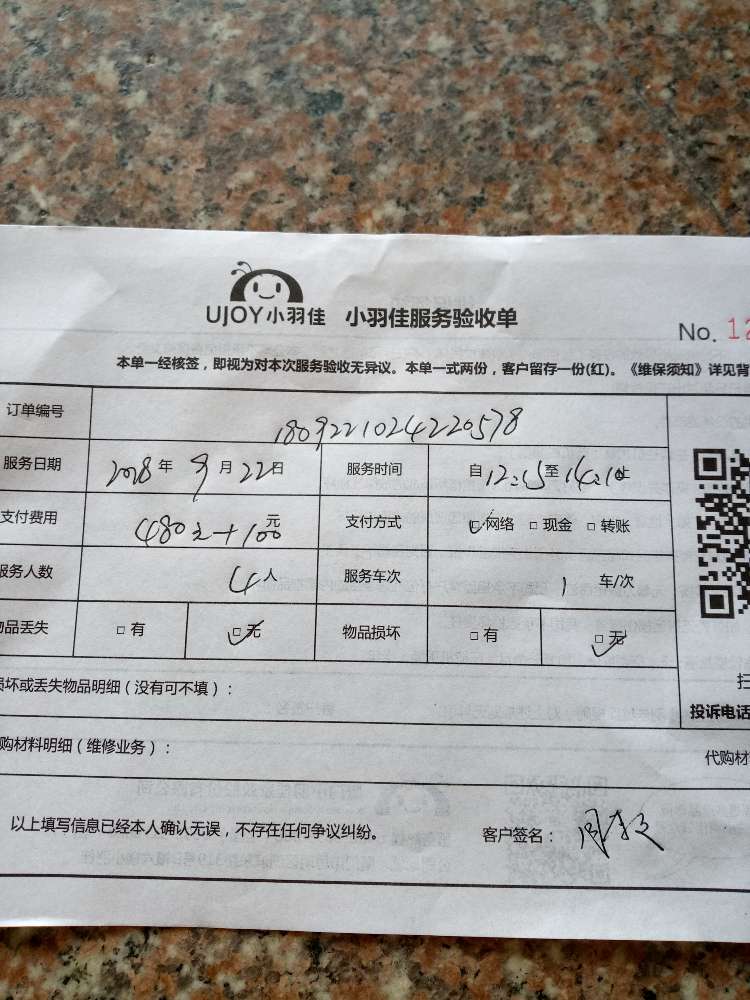 UJOY小羽佳 小羽佳服务验收单
No. 12
本单一经核签，即视为对本次服务验收无异议。本单一式两份，客户留存一份(红)。《维保须知》详见背
订单编号 1809221024220578
服务日期 2018年9月22日 服务时间 自12:15至14:10止
支付费用 480元+100元 支付方式 ☑网络 □现金 □转账
服务人数 4人 服务车次 1车/次
物品丢失 □有 ☑无 物品损坏 □有 ☑无
损坏或丢失物品明细（没有可不填）：
扫
投诉电话
购材料明细（维修业务）： 代购材
以上填写信息已经本人确认无误，不存在任何争议纠纷。 客户签名：